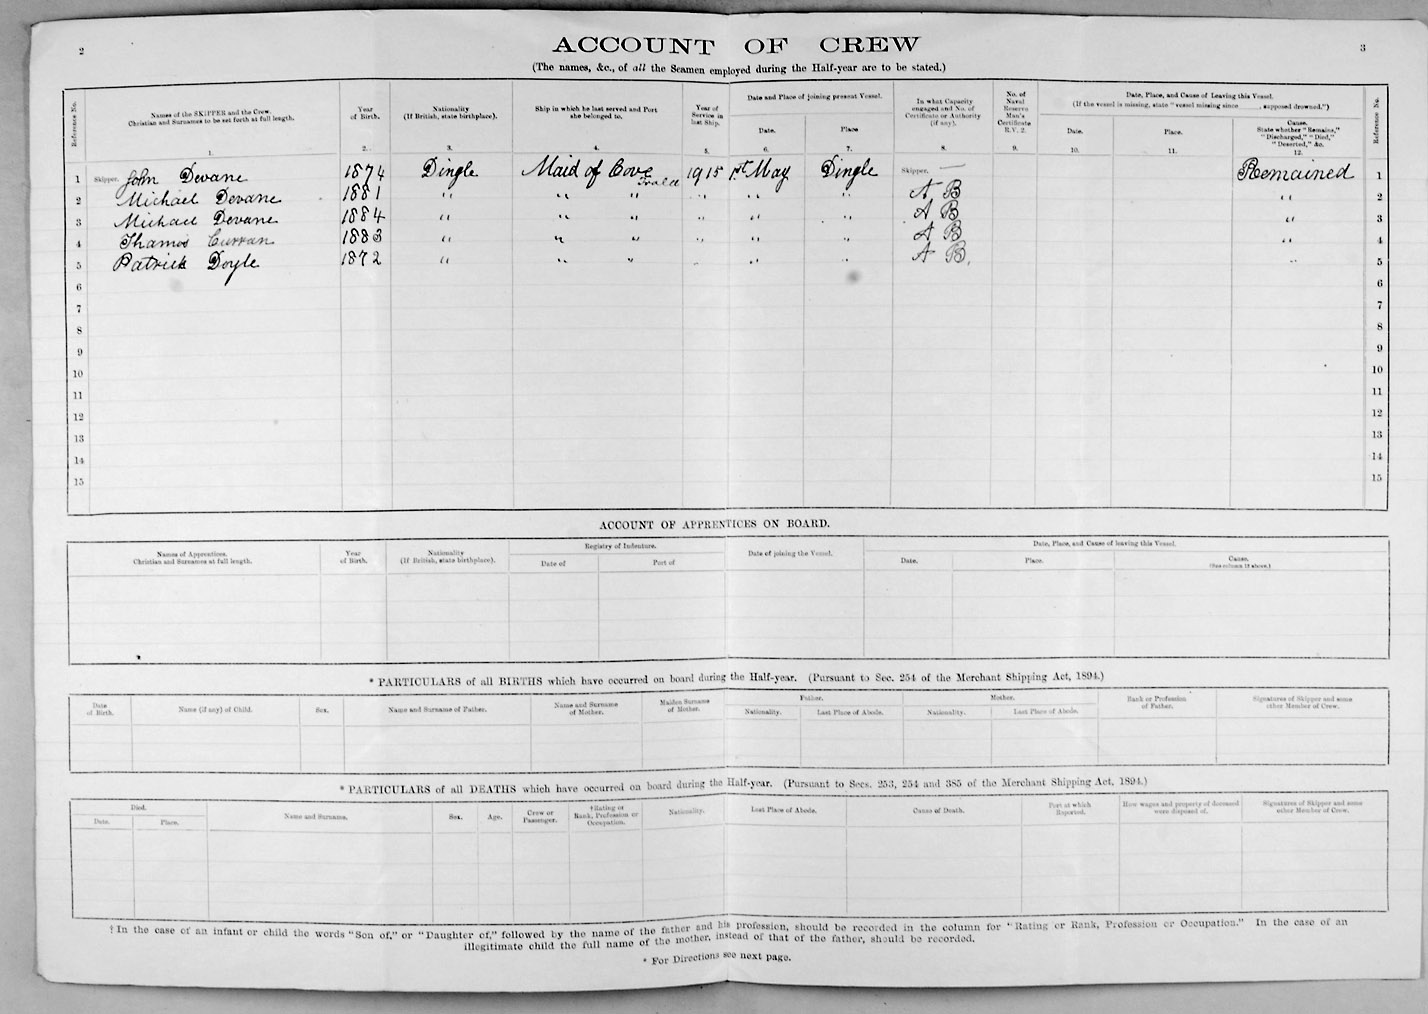 2
ACCOUNT OF CREW
3
(The names, &c., of all the Seamen employed during the Half-year are to be stated.)
Reference No. | Names of the SKIPPER and the Crew. Christian and Surnames to be set forth at full length. | Year of Birth. | Nationality (If British, state birthplace). | Ship in which he last served and Port she belonged to. | Year of Service in last Ship. | Date and Place of joining present Vessel. | In what Capacity engaged and No. of Certificate or Authority (if any). | No. of Naval Reserve Man's Certificate R.V. 2. | Date, Place, and Cause of Leaving this Vessel. (If the vessel is missing, state "vessel missing since , supposed drowned.") | Reference No.
Date. | Place | Date. | Place. | Cause. State whether "Remains," "Discharged," "Died," "Deserted," &c.
1. | 2. | 3. | 4. | 5. | 6. | 7. | 8. | 9. | 10. | 11. | 12.
1 Skipper. John Devane 1874 Dingle Maid of Cove Tralee 1915 1st May Dingle Skipper. — Remained 1
2 Michael Devane 1881 " " " " " " A B " 2
3 Michael Devane 1884 " " " " " " A B " 3
4 Thamos Curran 1883 " " " " " " A B " 4
5 Patrick Doyle 1872 " " " " " " A B. " 5
6 6
7 7
8 8
9 9
10 10
11 11
12 12
13 13
14 14
15 15
ACCOUNT OF APPRENTICES ON BOARD.
Names of Apprentices. Christian and Surnames at full length. | Year of Birth. | Nationality (If British, state birthplace). | Registry of Indenture. | Date of joining the Vessel. | Date, Place, and Cause of leaving this Vessel.
Date of | Port of | Date. | Place. | Cause. (See column 12 above.)
* PARTICULARS of all BIRTHS which have occurred on board during the Half-year. (Pursuant to Sec. 254 of the Merchant Shipping Act, 1894.)
Date of Birth. | Name (if any) of Child. | Sex. | Name and Surname of Father. | Name and Surname of Mother. | Maiden Surname of Mother. | Father. | Mother. | Rank or Profession of Father. | Signatures of Skipper and some other Member of Crew.
Nationality. | Last Place of Abode. | Nationality. | Last Place of Abode.
* PARTICULARS of all DEATHS which have occurred on board during the Half-year. (Pursuant to Secs. 253, 254 and 385 of the Merchant Shipping Act, 1894.)
Died. | Name and Surname. | Sex. | Age. | Crew or Passenger. | †Rating or Rank, Profession or Occupation. | Nationality. | Last Place of Abode. | Cause of Death. | Port at which Reported. | How wages and property of deceased were disposed of. | Signatures of Skipper and some other Member of Crew.
Date. | Place.
† In the case of an infant or child the words "Son of," or "Daughter of," followed by the name of the father and his profession, should be recorded in the column for "Rating or Rank, Profession or Occupation." In the case of an
illegitimate child the full name of the mother, instead of that of the father, should be recorded.
* For Directions see next page.